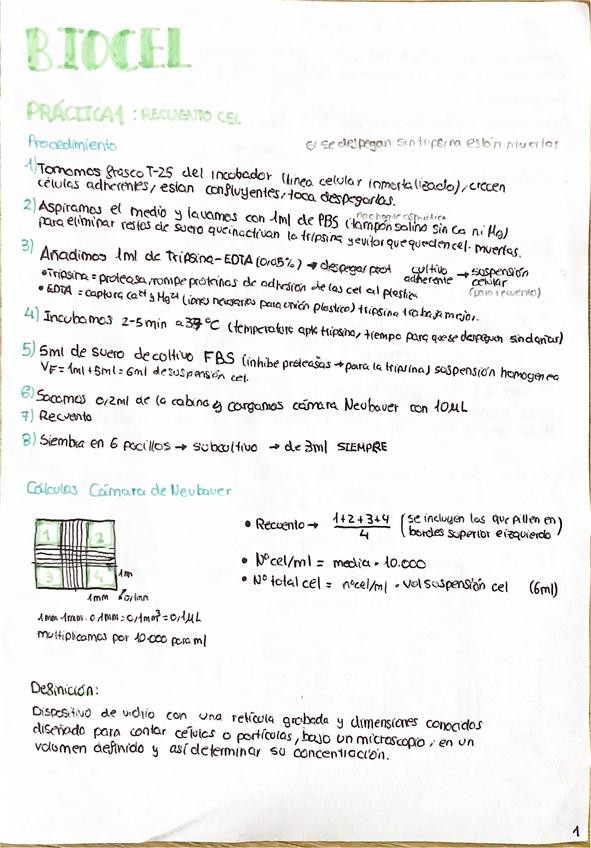 BIOCEL
PRÁCTICA 1 : RECUENTO CEL
Procedimiento
si se despegan sin tripsina están muertas
1) Tomamos frasco T-25 del incubador (línea celular inmortalizada), crecen
células adherentes, estan confluyentes, toca despegarlas.
no choque osmótico
2) Aspiramos el medio y lavamos con 1ml de PBS (tampón salino sin Ca ni Mg)
para eliminar restos de suero que inactivan la tripsina y evitar que queden cel. muertas.
3) Añadimos 1ml de Tripsina-EDTA (0,05%) → despegar post cultivo adherente → suspensión celular (para recuento)
• Tripsina = proteasa, rompe proteínas de adhesión de las cel al plastico
• EDTA = captura Ca2+ y Mg2+ (iones necesarios para unión plastico) tripsina trabaja mejor.
4) Incubamos 2-5 min a 37ºC (temperatura apta tripsina, tiempo para que se despeguen sin dañar)
5) 5ml de suero de cultivo FBS (inhibe proteasas → para la tripsina) suspensión homogenea
VF = 1ml + 5ml = 6ml de suspensión cel.
6) Sacamos 0,2ml de la cabina y cargamos cámara Neubauer con 10µL
7) Recuento
8) Siembra en 6 pocillos → subcultivo → de 3ml SIEMPRE
Cálculos Cámara de Neubauer
1 2
3 4
1m
1mm 0,1mm
1mm·1mm·0,1mm = 0,1mm³ = 0,1µL
multiplicamos por 10.000 para ml
• Recuento → 1+2+3+4 / 4 (se incluyen las que pillen en bordes superior e izquierdo)
• Nº cel/ml = media · 10.000
• Nº total cel = nº cel/ml · vol suspensión cel (6ml)
Definición:
Dispositivo de vidrio con una retícula grabada y dimensiones conocidas
diseñado para contar células o partículas, bajo un microscopio, en un
volumen definido y así determinar su concentración.
1